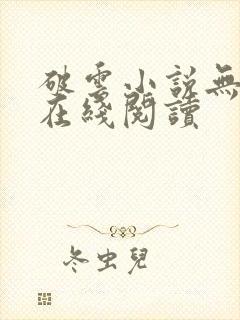 破雲小說無
在綫閱讀
冬虫兒